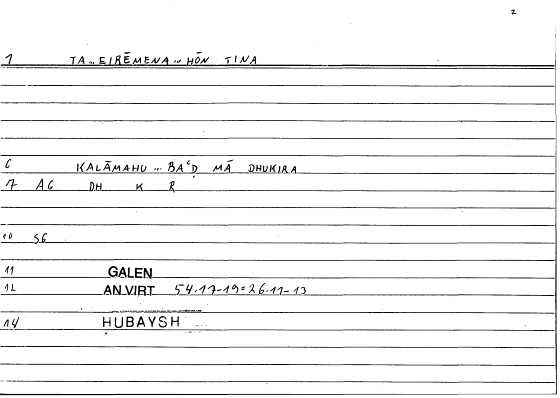 2
1 TA .. EIRĒMENA .. HŌN TINA
6 KALĀMAHU ... BAʿḌ MĀ DHUKIRA
7 AG DH K R
10 SG
11 GALEN
12 AN VIRT 54.17-19=26.11-13
14 ḤUBAYSH